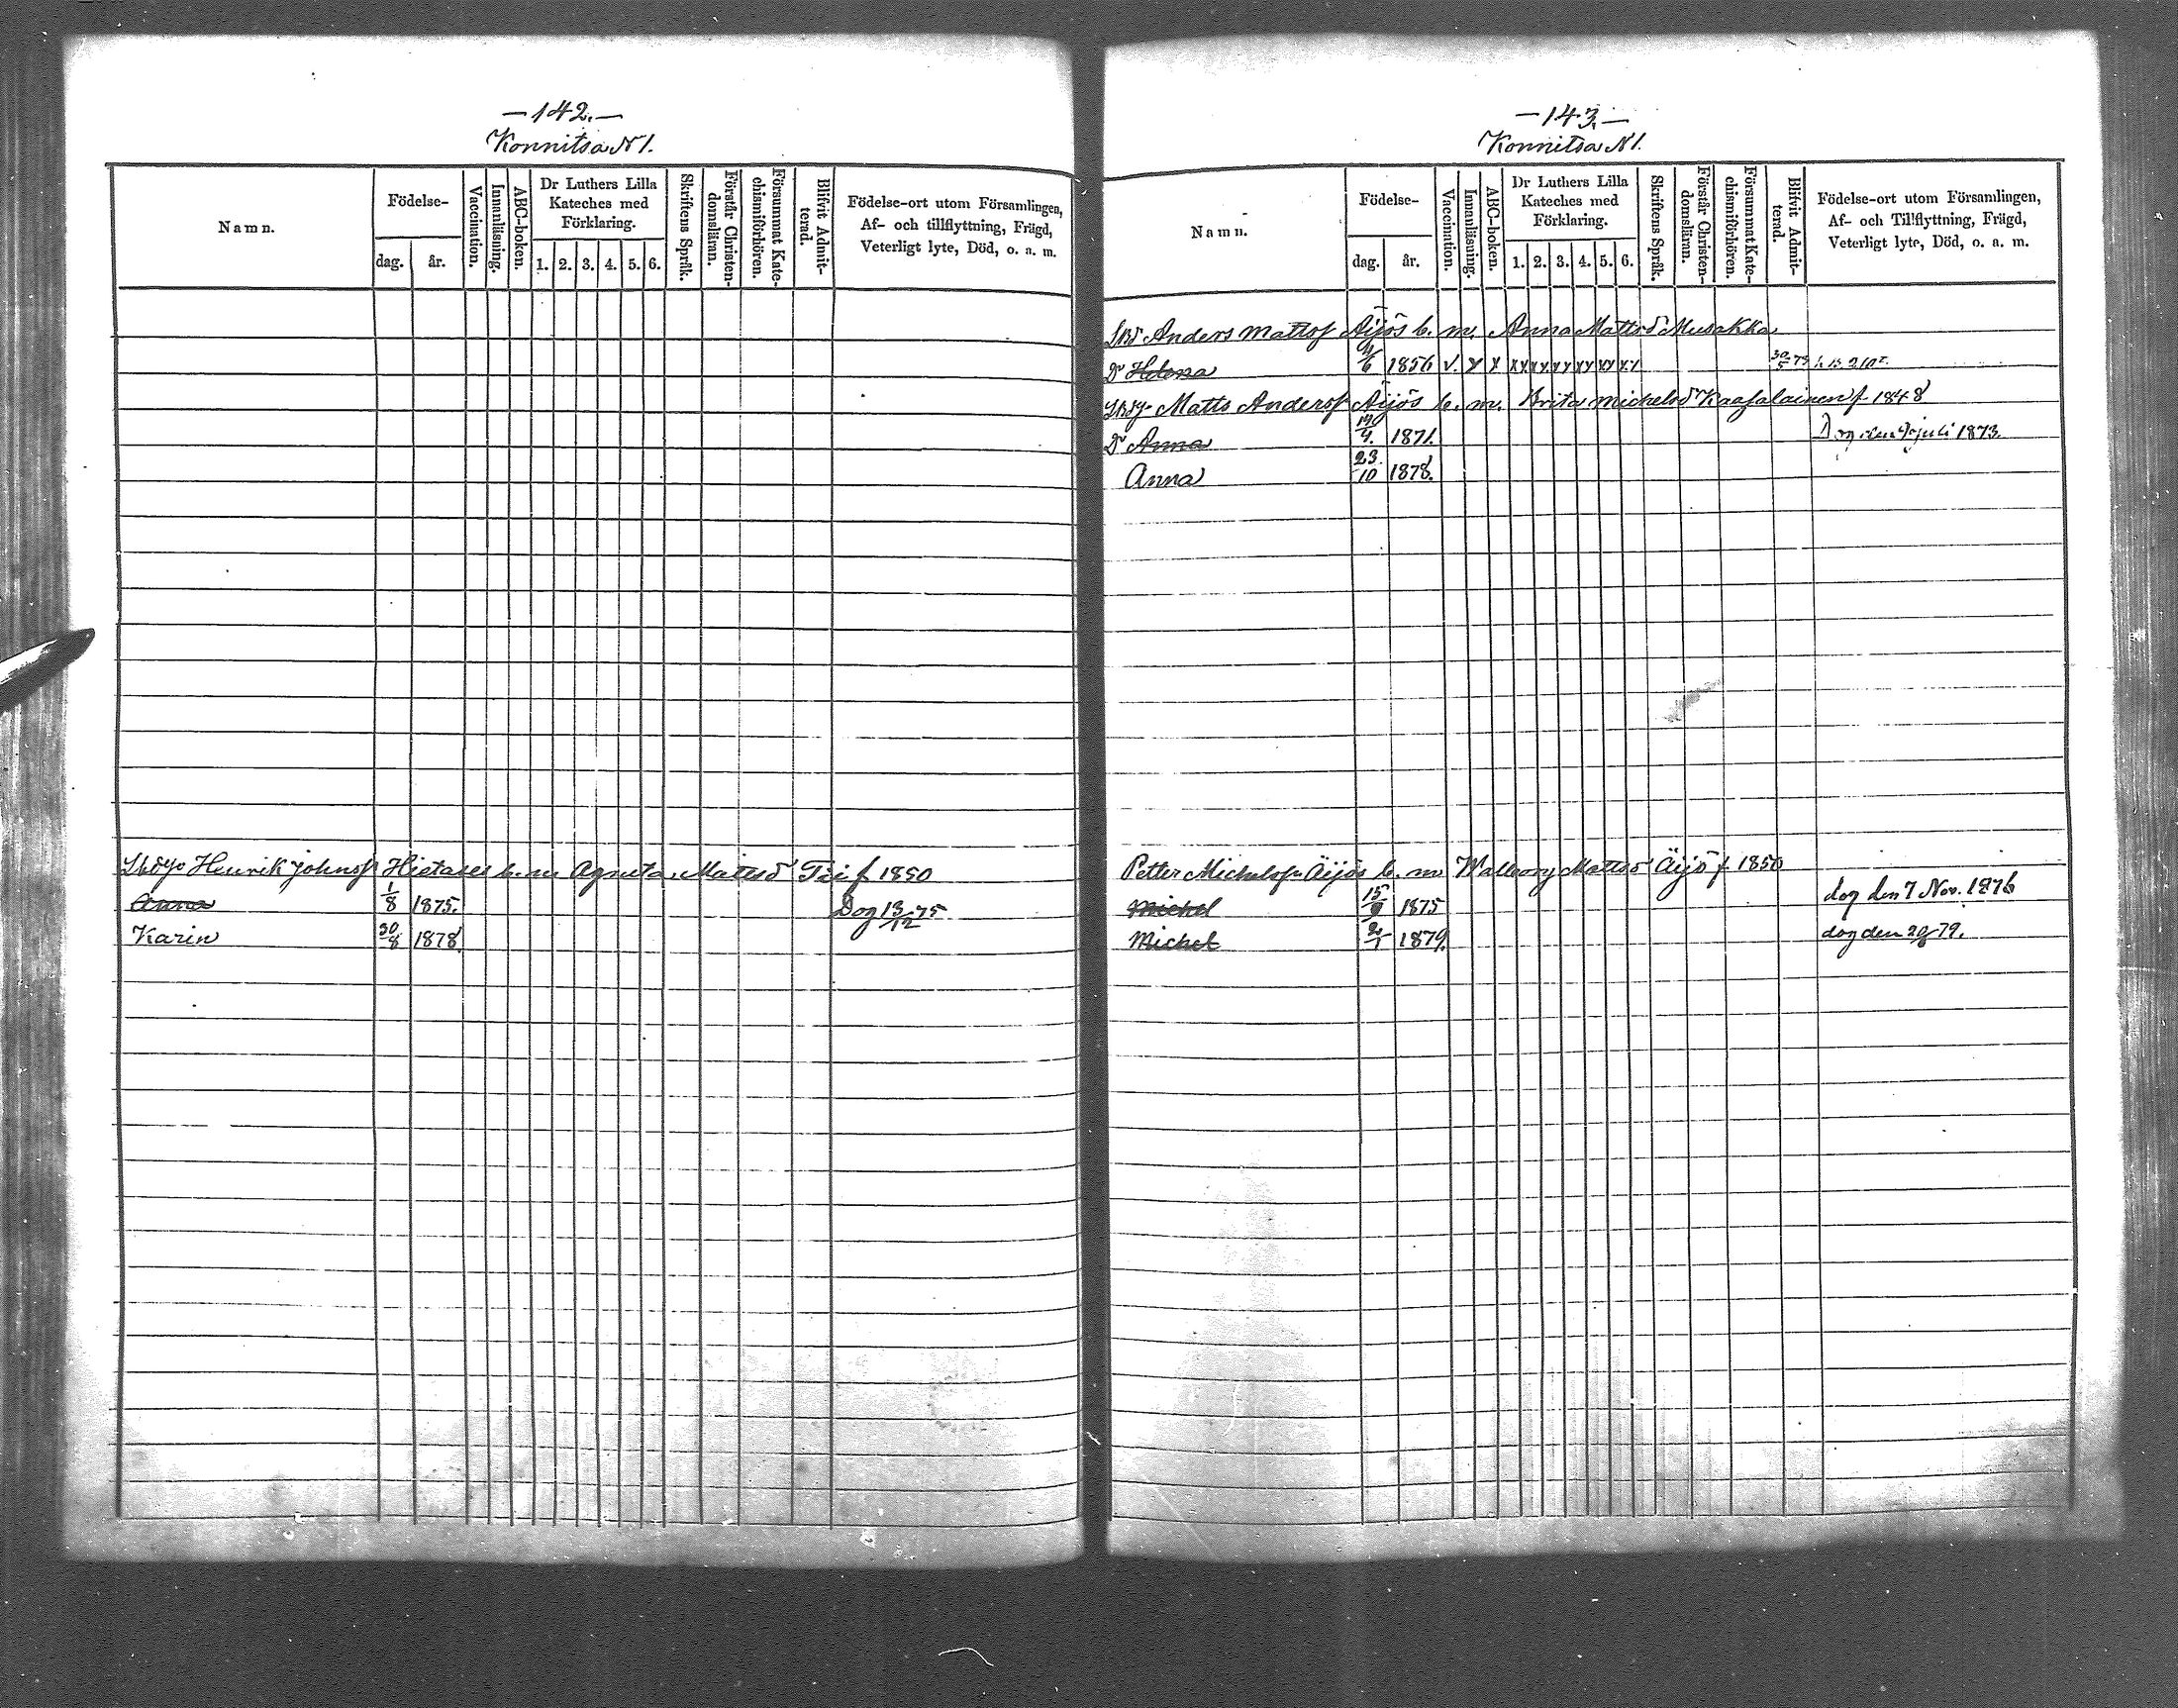 —142.—
Konnitsa N1.
Namn.
Födelse-
dag.
år.
Vaccination.
Innanläsning.
ABC-boken.
Dr Luthers Lilla
Kateches med
Förklaring.
1. 2. 3. 4. 5. 6.
Skriftens Språk.
Förstår Christen-
domsläran.
Försummat Kate-
chismiförhören.
Blifvit Admit-
terad.
Födelse-ort utom Församlingen,
Af- och tillflyttning, Frägd,
Veterligt lyte, Död, o. a. m.
Henrik Johnsson b. m. Agneta Mattsd f 1850
Anna 1/8 1875. Dog 13/12 75
Karin 30/8 1878.
—143.—
Konnitsa N1.
Namn.
Födelse-
dag.
år.
Vaccination.
Innanläsning.
ABC-boken.
Dr Luthers Lilla
Kateches med
Förklaring.
1. 2. 3. 4. 5. 6.
Skriftens Språk.
Förstår Christen-
domsläran.
Försummat Kate-
chismiförhören.
Blifvit Admit-
terad.
Födelse-ort utom Församlingen,
Af- och Tillflyttning, Frägd,
Veterligt lyte, Död, o. a. m.
Anders Mattss Äijös b. m. Anna Mattsd Musakka
Dr Helena 1856 v. x x xx xx xx xx xx xx
Matts Anderss Äijös b. m. Brita Michelsd Kaasalainen f 1848
Dr Anna 1871. Dog den juli 1873.
Anna 23/10 1878.
Petter Michelss Äijös b. m. Walborg Mattsd Äijö f 1850
Michel 15/9 1875 dog den 7 Nov. 1876
Michel 2/1 1879. dog den 79.